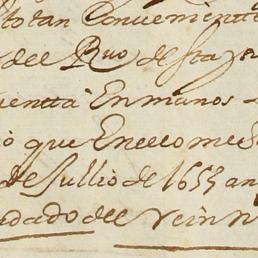 to tan Conueniente
del Rno de sta
uentta En manos
o que En eco me
de Jullio de 1653 an
dado del Rein